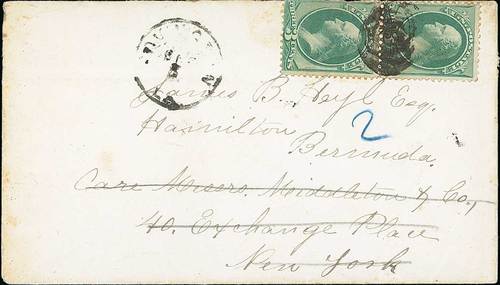 James B. Heyl Esq.
Hamilton
2
Bermuda.
Care Messrs. Middleton & Co.,
40. Exchange Place
New York